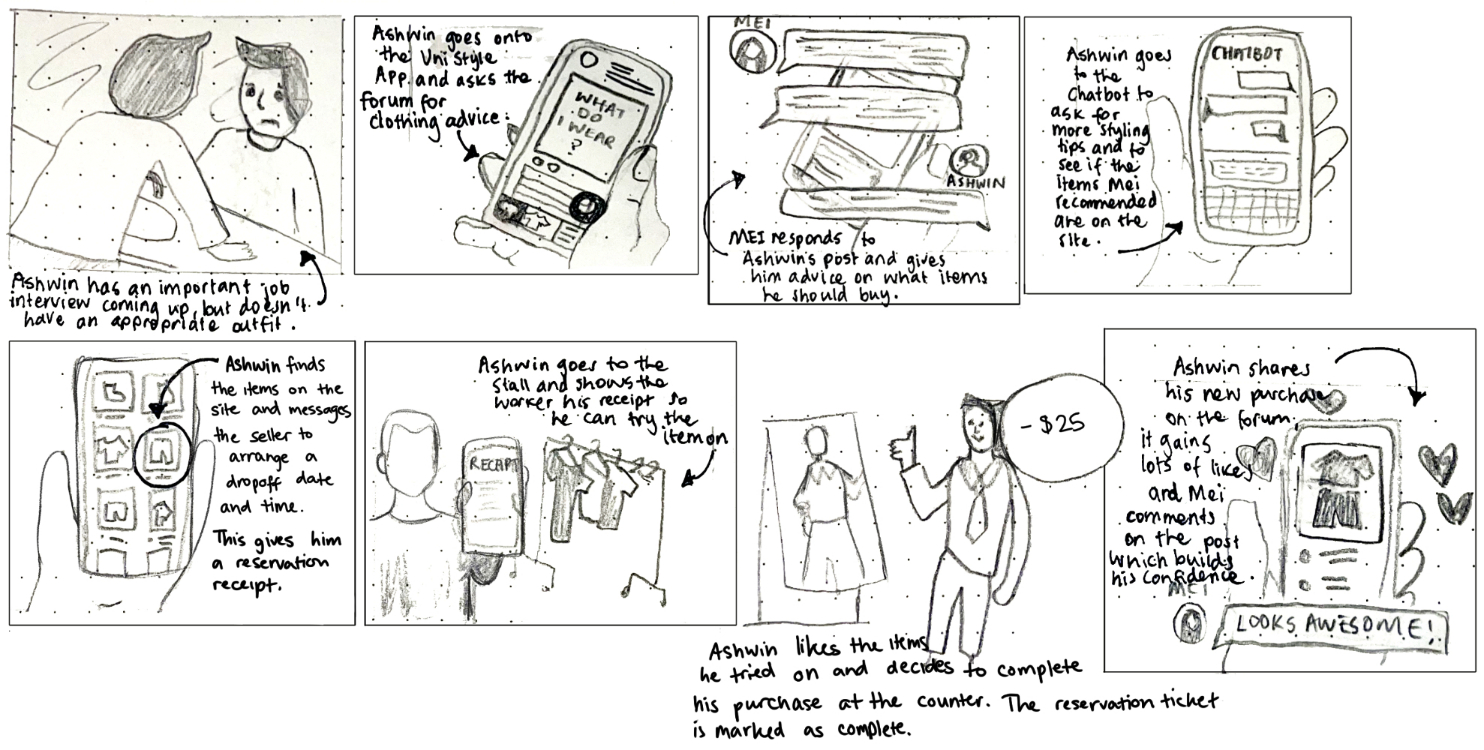 Ashwin has an important job
interview coming up, but doesn't
have an appropriate outfit.
Ashwin goes onto
the Uni Style
App and asks the
forum for
clothing advice.
WHAT
DO
I WEAR
?
MEI
ASHWIN
MEI responds to
Ashwin's post and gives
him advice on what items
he should buy.
Ashwin goes
to the
Chatbot to
ask for
more styling
tips and to
see if the
items Mei
recommended
are on the
site.
CHATBOT
Ashwin finds
the items on the
site and messages
the seller to
arrange a
dropoff date
and time.
This gives him
a reservation
receipt.
Ashwin goes to the
stall and shows the
worker his receipt so
he can try the
item on
- $25
Ashwin likes the items
he tried on and decides to complete
his purchase at the counter. The reservation ticket
is marked as complete.
Ashwin shares
his new purchase
on the forum,
it gains
lots of likes
and Mei
comments
on the post
which builds
his confidence.
MEI
LOOKS AWESOME!